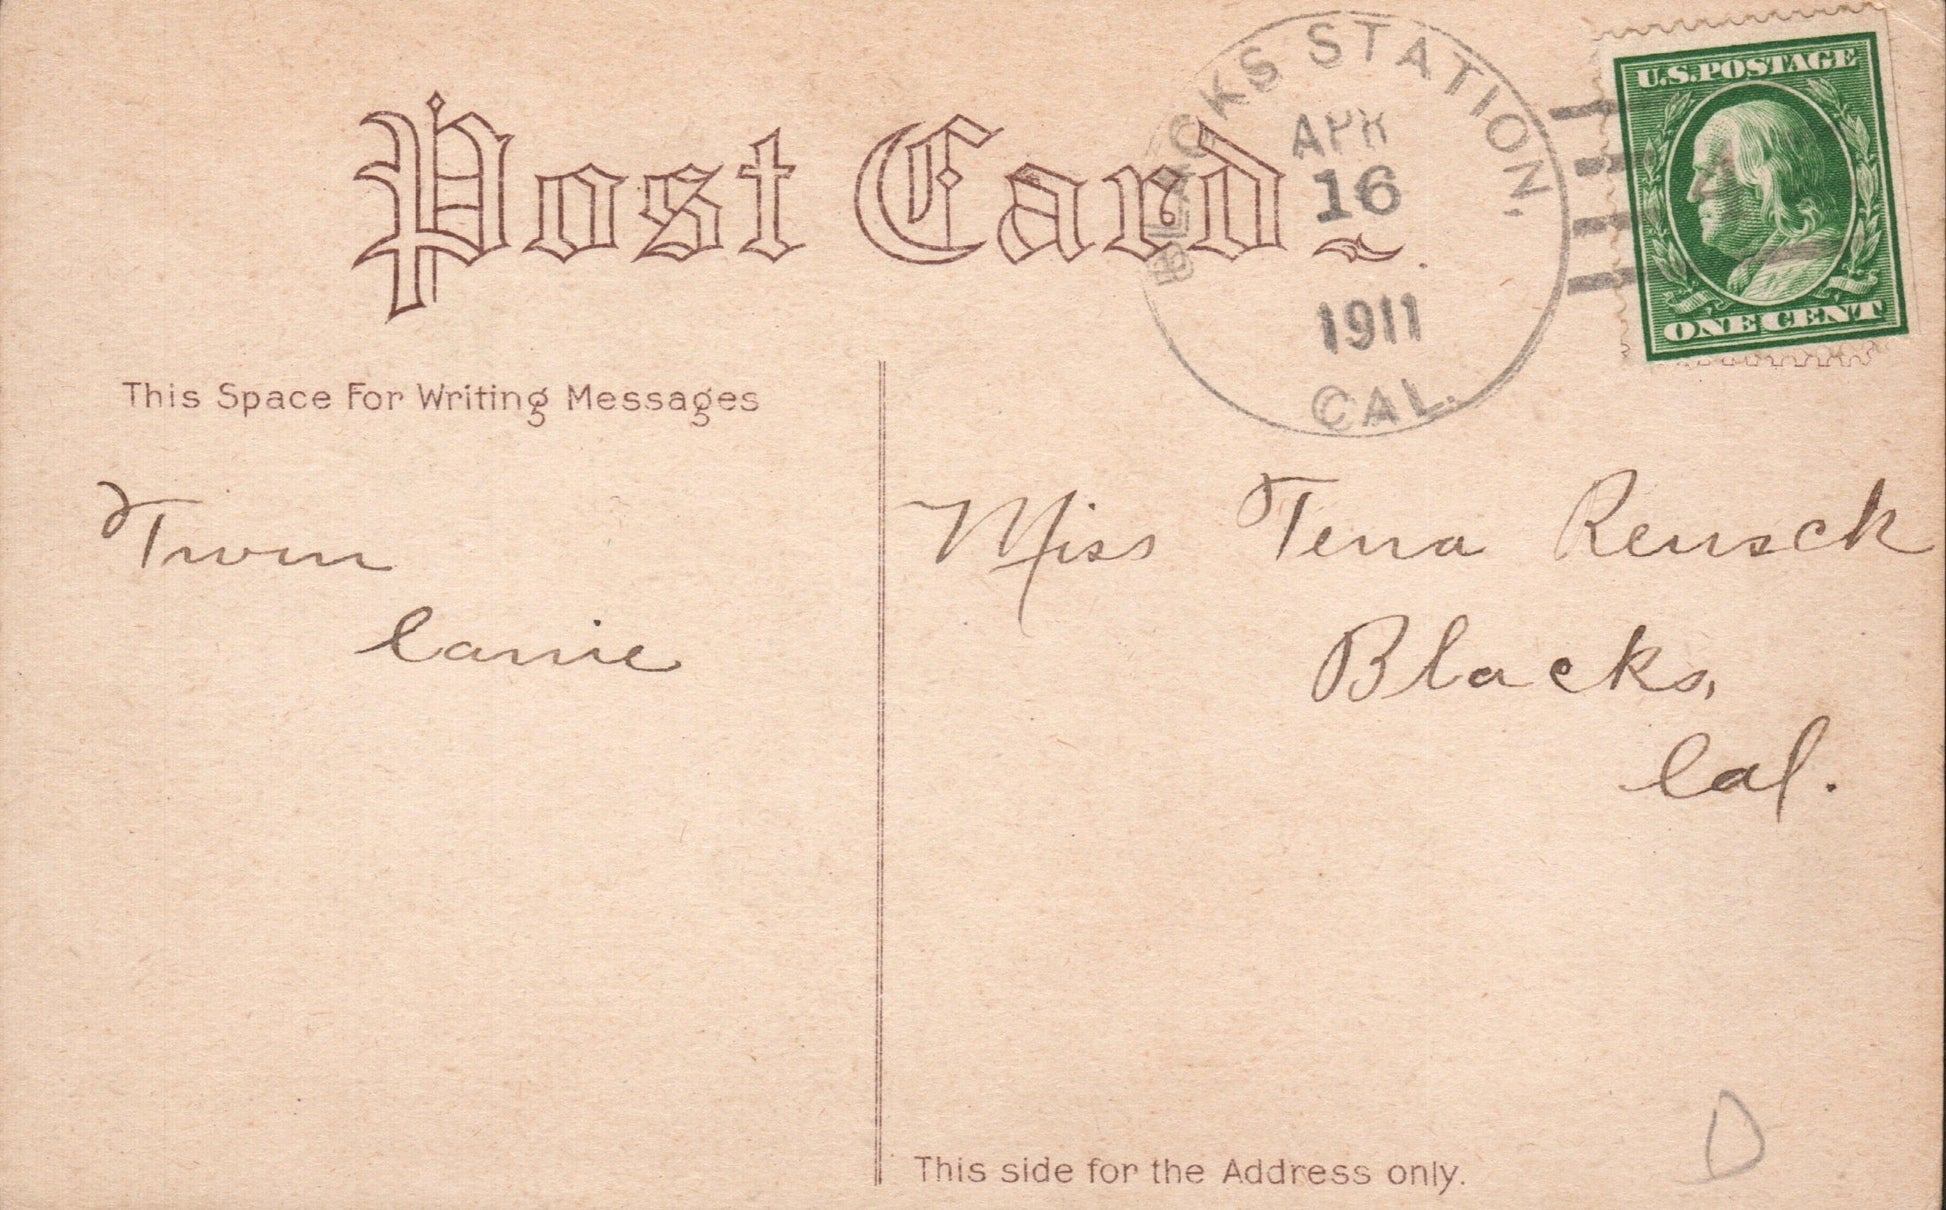 BLACKS STATION,
APR
16
1911
CAL.
U.S. POSTAGE
4
ONE CENT
Post Card
This Space For Writing Messages
From
Carrie
Miss Tena Reusch
Blacks,
Cal.
D
This side for the Address only.